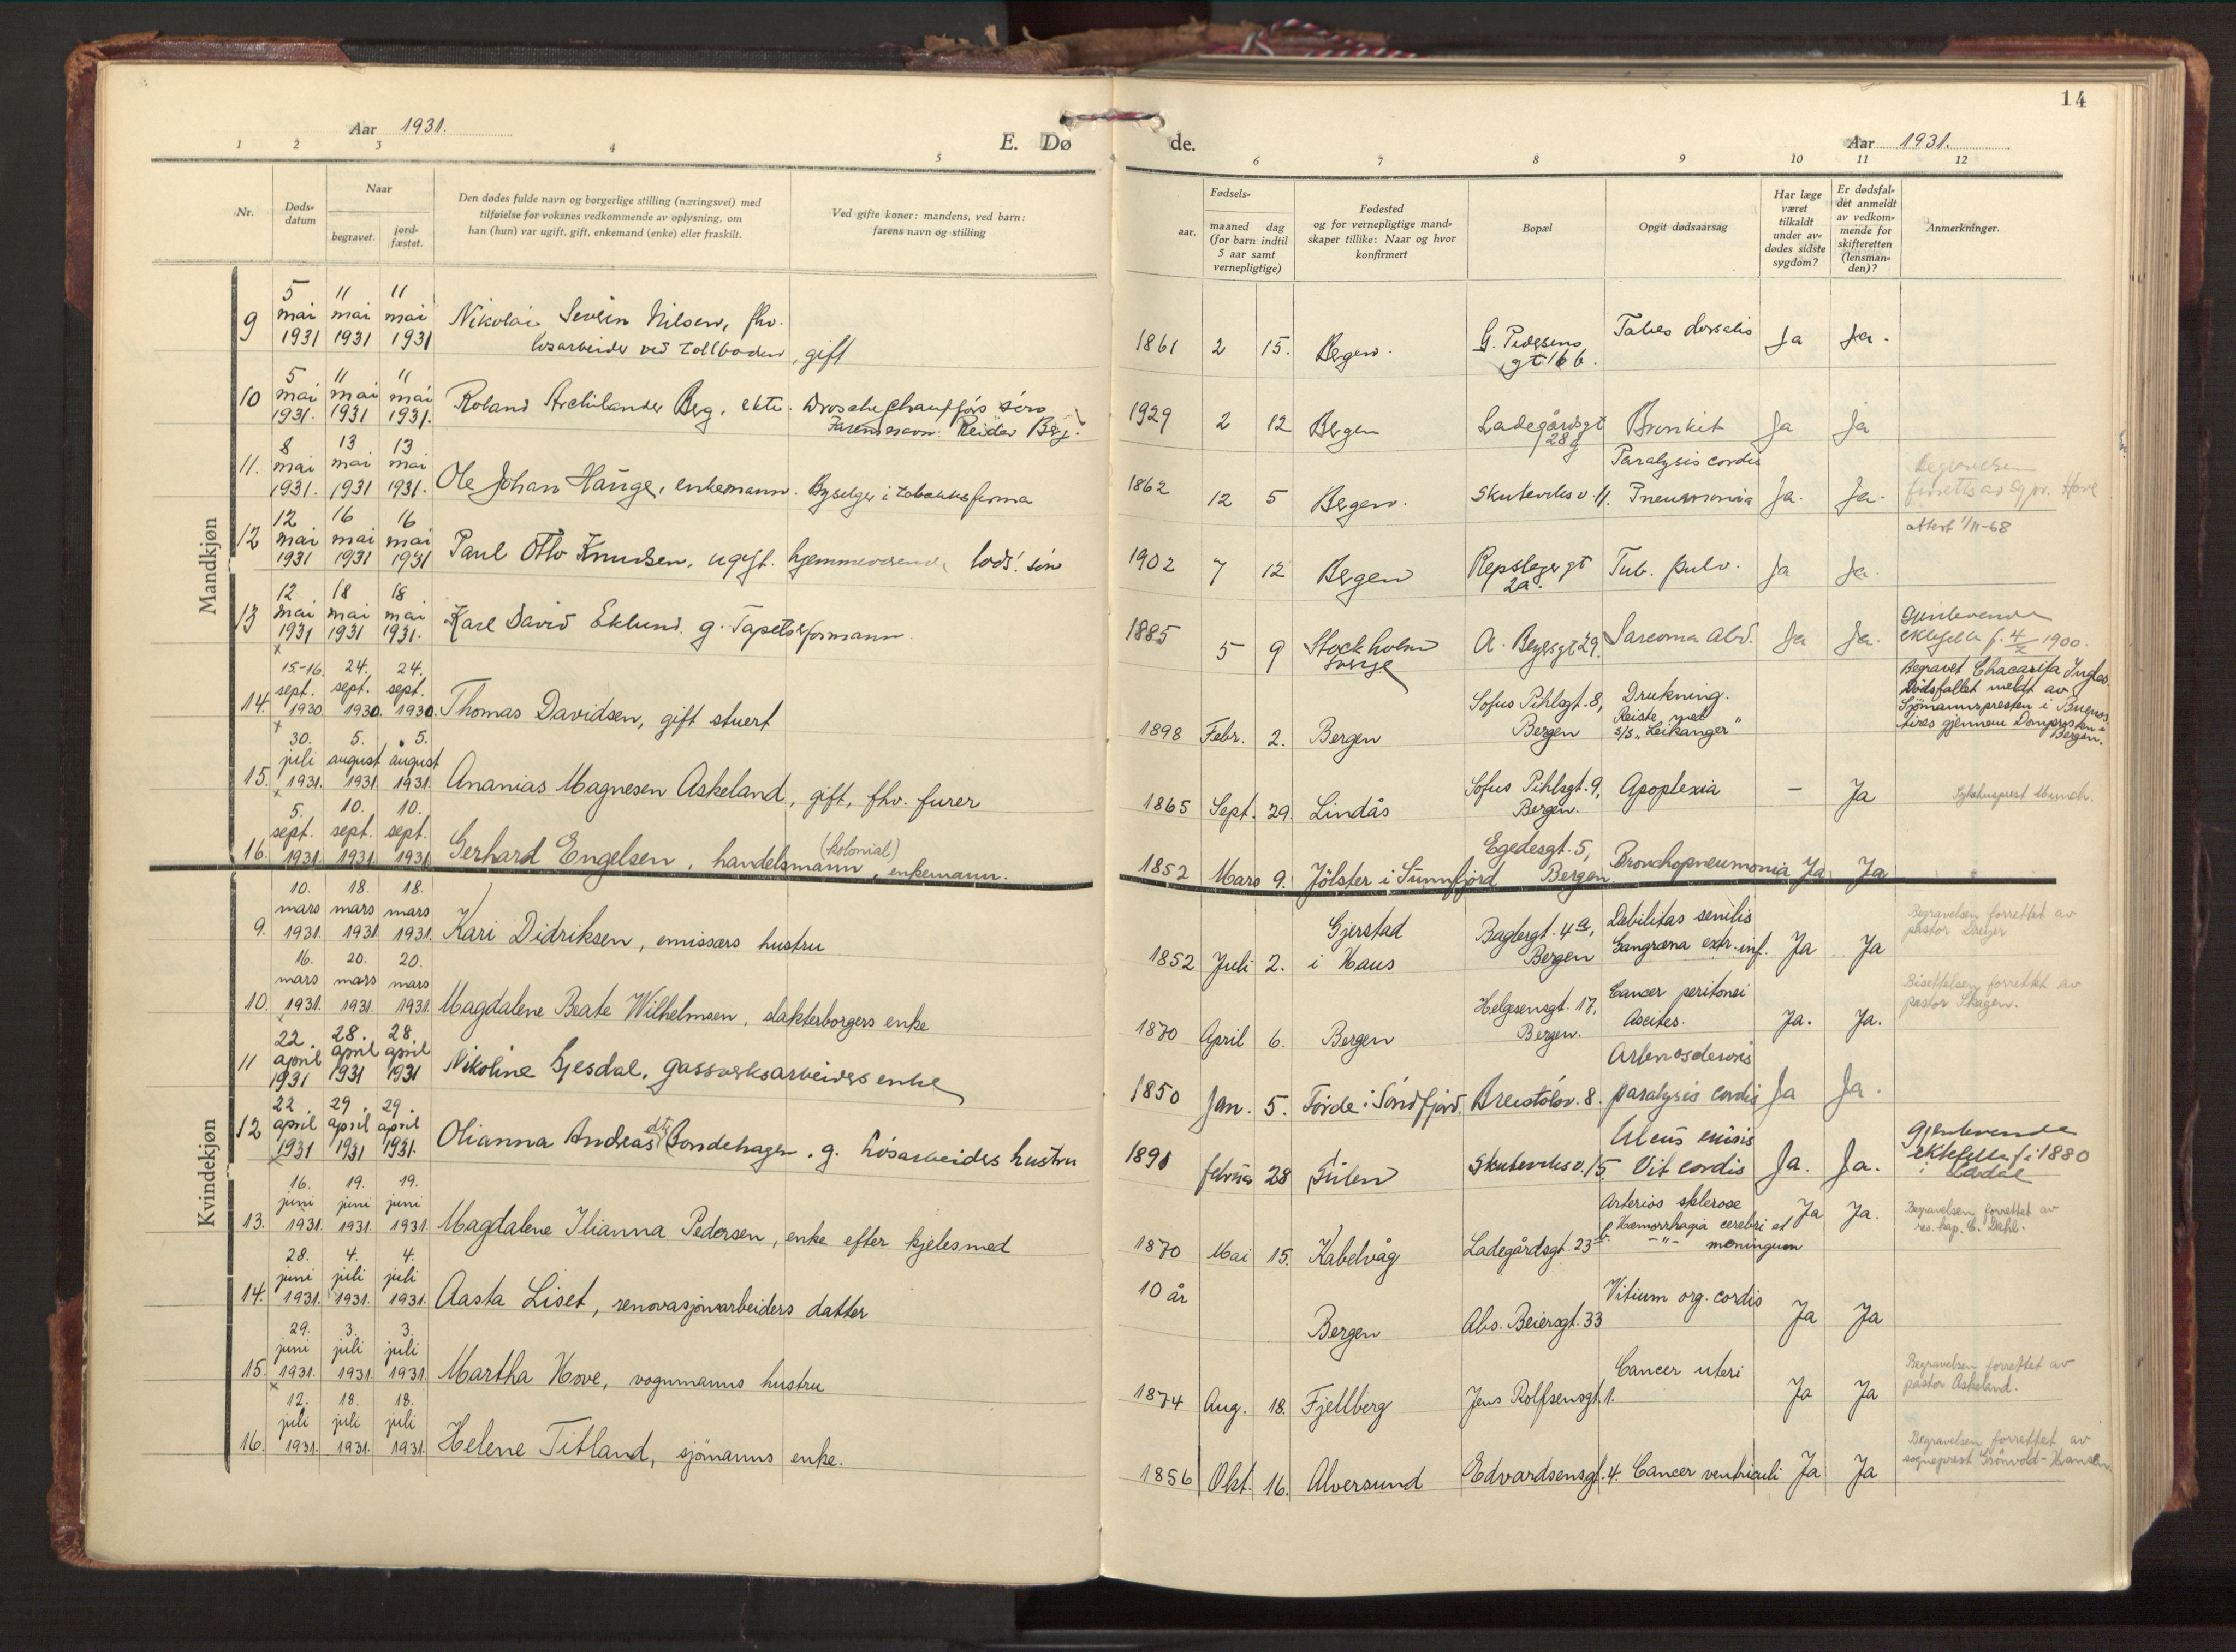 14
Aar 1931.
E. Dø de.
Aar 1931.
1 2 3 4 5 6 7 8 9 10 11 12
Nr.
Døds-
datum
Naar
begravet.
jord-
fæstet.
Den dødes fulde navn og borgerlige stilling (næringsvei) med
tilføielse for voksnes vedkommende av oplysning, om
han (hun) var ugift, gift, enkemand (enke) eller fraskilt.
Ved gifte koner: mandens, ved barn:
farens navn og stilling
Fødsels-
aar.
maaned dag
(for barn indtil
5 aar samt
vernepligtige)
Fødested
og for vernepligtige mand-
skaper tillike: Naar og hvor
konfirmert
Bopæl
Opgit dødsaarsag
Har læge
været
tilkaldt
under av-
dødes sidste
sygdom?
Er dødsfal-
det anmeldt
av vedkom-
mende for
skifteretten
(lensman-
den)?
Anmerkninger.
Mandkjøn
5 11 11
mai mai mai
9 1931 1931 1931 Nikolai Severin Nilsen, fhv.
løsarbeider ved tollboden, gift
1861 2 15. Bergen. G. Pedersens
gt 16 b. Tabes dorsalis Ja Ja.
5 11 11
mai mai mai
10 1931. 1931 1931. Roland Archilander Berg, ekte. Droschechaufförs sön
Farens navn: Reidar Berg.
1929 2 12 Bergen Ladegårdsgt
28 Bronkit Ja Ja
8 13 13
mai mai mai
11. 1931. 1931 1931. Ole Johan Hauge, enkemann. Byselger i tobakksfirma
1862 12 5 Bergen. Skuteviksv. 11. Paralysis cordis
Pneumonia Ja. Ja. Begravelsen
forrettes av Hove
12 16 16
mai mai mai
12 1931 1931 1931 Paul Otto Knudsen, ugift. hjemmeværende lods' sön
1902 7 12 Bergen Repslagergt
2a. Tub. pulv. Ja Ja. attest 1/11-68
12 18 18
mai mai mai
13 1931 1931 1931. Karl David Eklund. g. Tapetserformann.
1885 5 9 Stockholm
Sverige A. Beyersgt 29. Sarcoma Abd. Ja Ja. Gjenlevende
ektefelle f. 4/2 1900.
x
15-16. 24. 24.
sept. sept. sept.
14. 1930. 1930. 1930. Thomas Davidsen, gift stuert
1898 Febr. 2. Bergen Sofus Pihlsgt. 8,
Bergen Drukning.
Reiste med
s/s "Leikanger"
Begravet Chacarita Ingles.
Dødsfallet meldt av
Sjömannspresten i Buenos
Aires gjennem Domprosten i
Bergen.
x
30. 5. 5.
juli august august
15. 1931. 1931. 1931. Ananias Magnesen Askeland, gift, fhv. furer
1865 Sept. 29. Lindås Sofus Pihlsgt. 9,
Bergen. Apoplexia – Ja Sykehusprest Munch.
x
5. 10. 10.
sept. sept. sept.
16. 1931. 1931. 1931. Gerhard Engelsen, handelsmann (kolonial), enkemann.
1852 Mars 9. Jölster i Sunnfjord Egedesgt. 5,
Bergen Bronchopneumonia Ja Ja
Kvindekjøn
10. 18. 18.
mars mars mars
9. 1931. 1931. 1931. Kari Didriksen, emissærs hustru
1852 Juli 2. Gjerstad
i Haus Baglergt. 4a,
Bergen Debilitas senilis
Gangræna extr. inf. Ja Ja Begravelsen forrettet av
pastor Dreyer
16. 20. 20.
mars mars mars
10. 1931. 1931. 1931. Magdalene Beate Wilhelmsen, slakterborgers enke
1870 April 6. Bergen Helgesensgt. 17,
Bergen. Cancer peritonei
Ascites. Ja. Ja. Bisettelsen forrettet av
pastor Skagen.
22. 28. 28.
april april april
11 1931 1931 1931 Nikoline Gjesdal, gassverksarbeiders enke
1850 Jan. 5. Förde i Söndfjord. Breistölsv. 8. Arteriosclerosis
paralysis cordis Ja Ja.
22. 29. 29.
april april april
12 1931 1931 1931. Olianna Andreasdtr Bondehagen. g. Lösarbeiders hustru
1891 februar 28 Gulen Skuteviksv. 15. Ulcus
Vit cordis Ja. Ja. Gjenlevende
ektefelle f. i 1880
i
x
16. 19. 19.
juni juni juni
13. 1931. 1931. 1931. Magdalene Ilianna Pedersen, enke efter kjelesmed
1870 Mai 15. Kabelvåg Ladegårdsgt. 23 Arterios sklerose
Hæmorrhagia cerebri et
-"- meningum Ja Ja. Begravelsen forrettet av
res. kap. C. Dahl.
28. 4. 4.
juni juli juli
14. 1931. 1931. 1931. Aasta Liset, renovasjonsarbeiders datter
10 år Bergen Abs. Beiersgt. 33 Vitium org. cordis Ja Ja
29. 3. 3.
juni juli juli
15. 1931. 1931. 1931. Martha Hove, vognmanns hustru
1874 Aug. 18. Fjellberg Jens Rolfsensgt. 1. Cancer uteri Ja Ja Begravelsen forrettet av
pastor Askeland.
x
12. 18. 18.
juli juli juli
16. 1931. 1931. 1931. Helene Titland, sjömanns enke.
1856 Okt. 16. Alversund Edvardsensgt. 4. Cancer ventriculi Ja Ja Begravelsen forrettet av
sogneprest Grönvold-Hansen